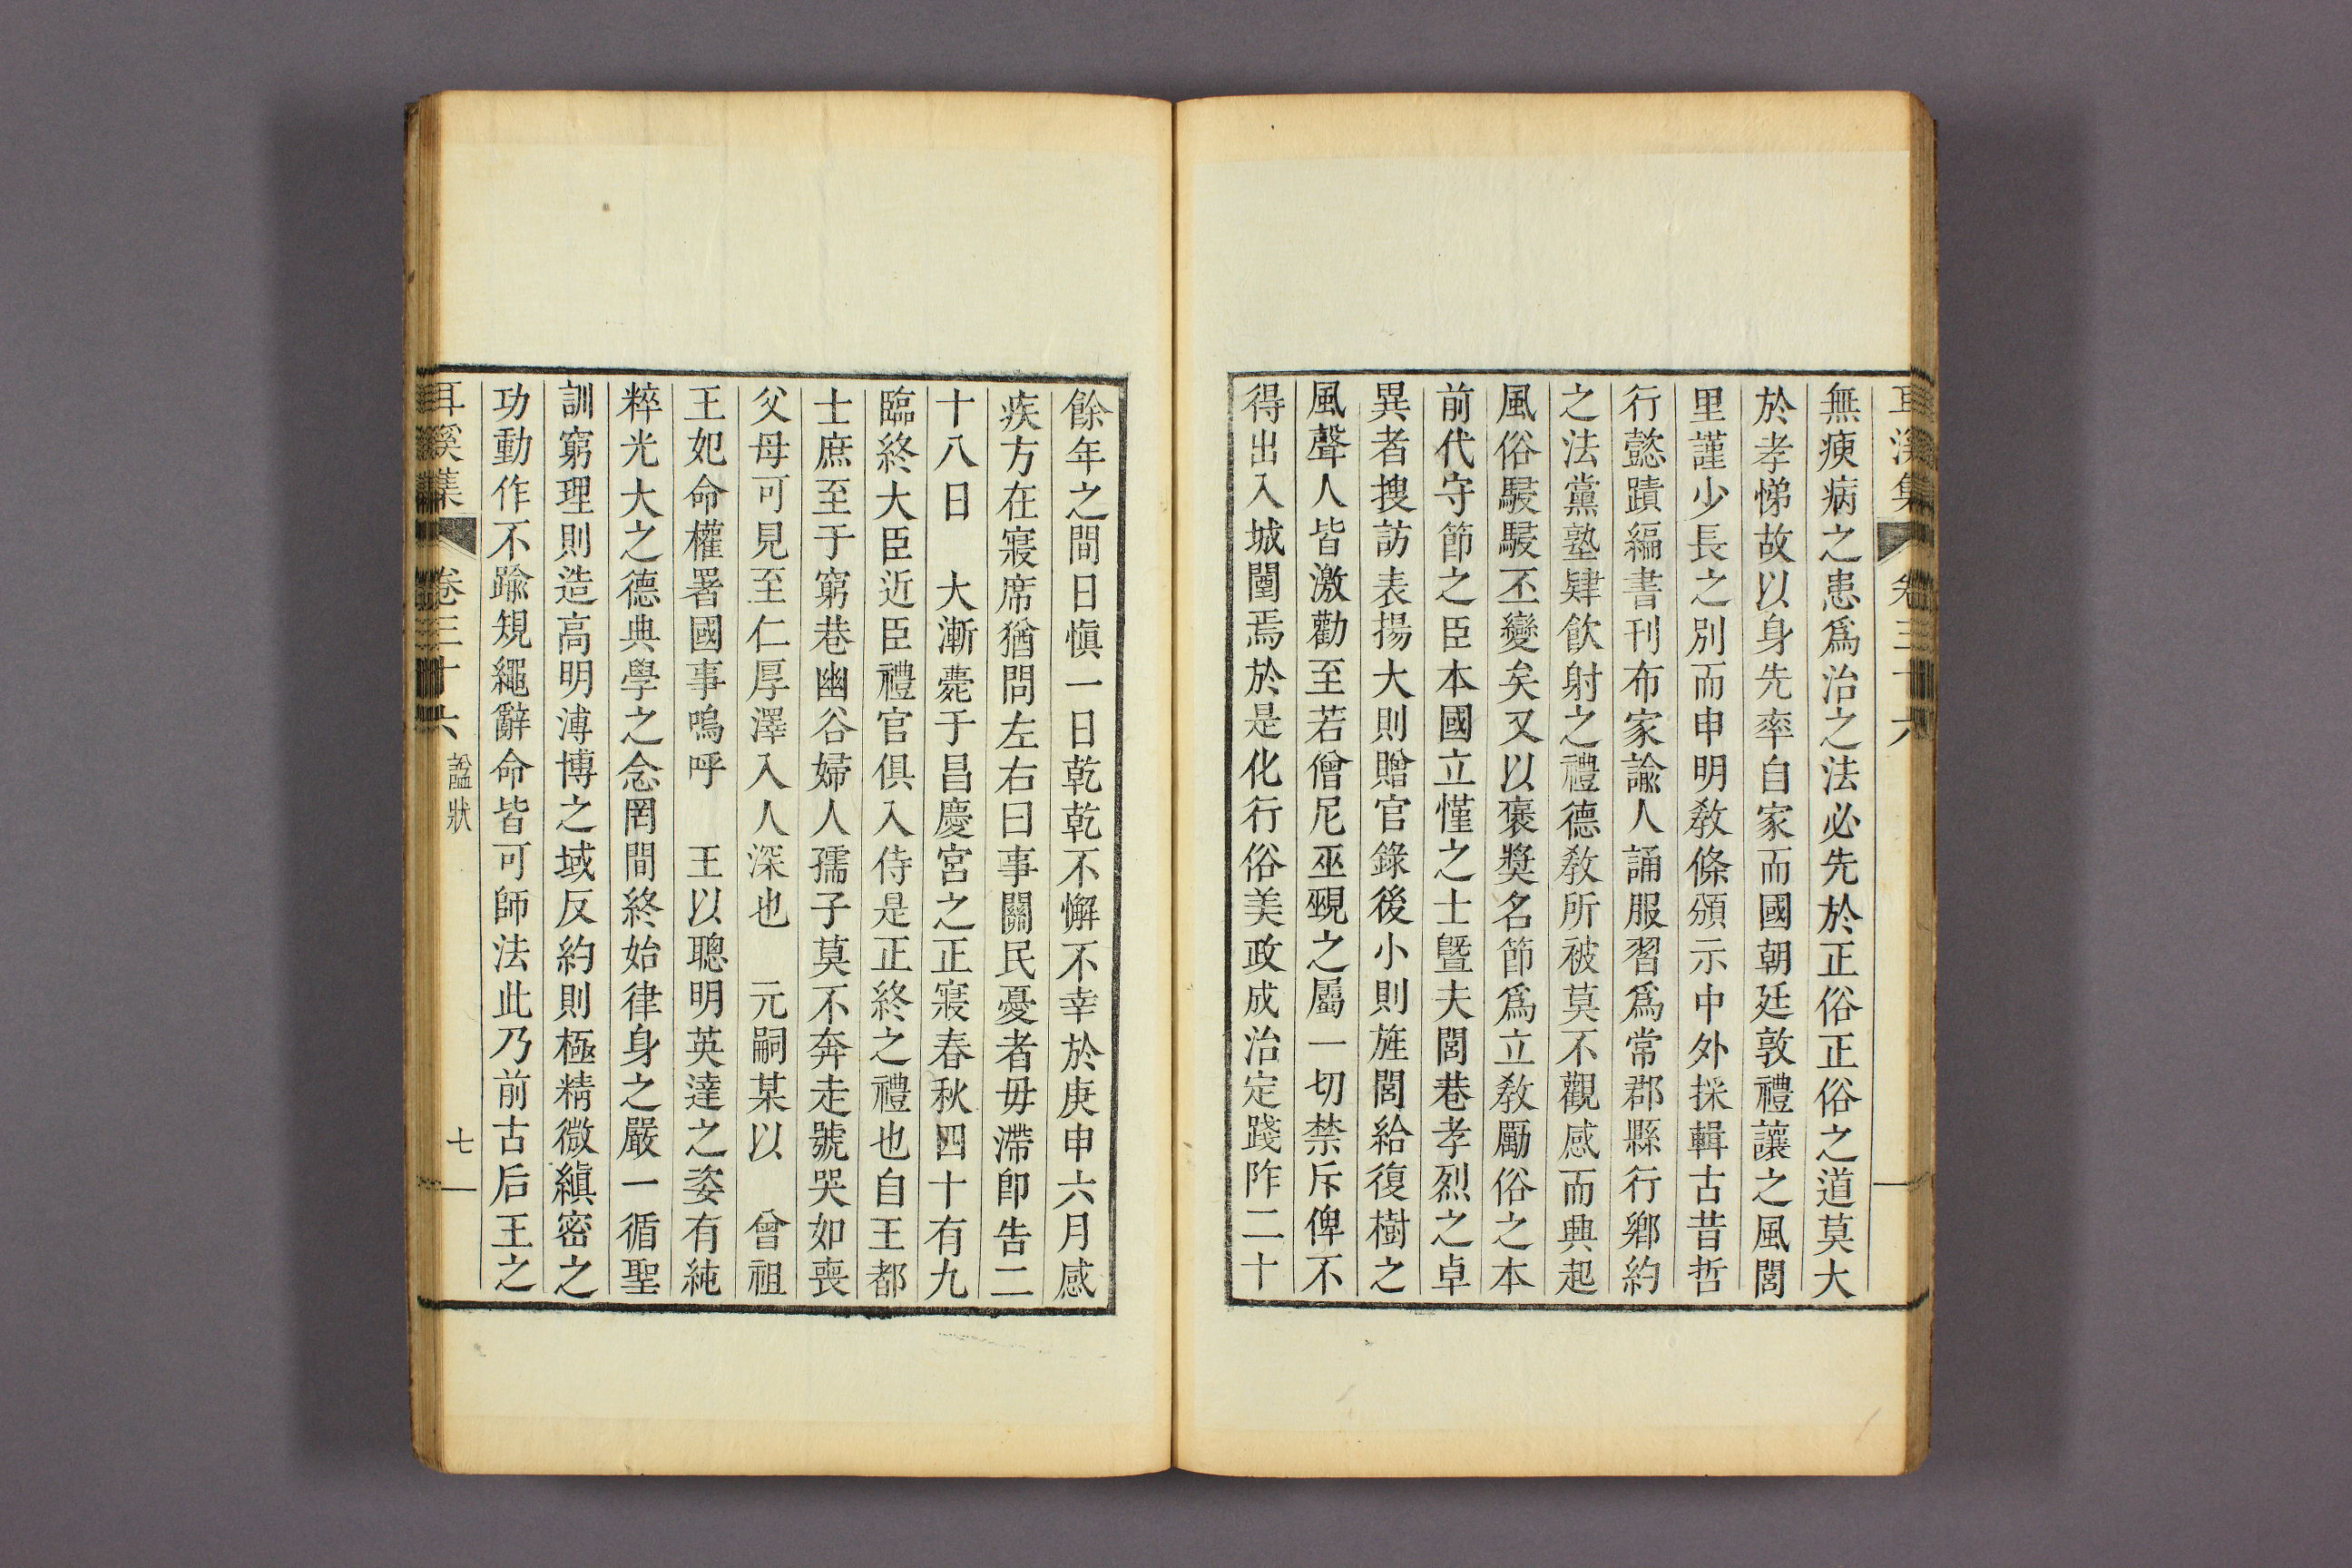 耳溪集 卷三十六
無瘐病之患爲治之法必先於正俗正俗之道莫大
於孝悌故以身先率自家而國朝廷敦禮讓之風閭
里謹少長之別而申明敎條頒示中外採輯古昔哲
行懿蹟編書刊布家諭人誦服習爲常郡縣行鄕約
之法黨塾肄飮射之禮德敎所被莫不觀感而興起
風俗駸駸丕變矣又以褒奬名節爲立敎勵俗之本
前代守節之臣本國立慬之士曁夫閭巷孝烈之卓
異者搜訪表揚大則贈官錄後小則旌閭給復樹之
風聲人皆激勸至若僧尼巫覡之屬一切禁斥俾不
得出入城闉焉於是化行俗美政成治定踐阼二十
餘年之間日愼一日乾乾不懈不幸於庚申六月感
疾方在寢席猶問左右曰事關民憂者毋滯卽告二
十八日 大漸薨于昌慶宮之正寢春秋四十有九
臨終大臣近臣禮官俱入侍是正終之禮也自王都
士庶至于窮巷幽谷婦人孺子莫不奔走號哭如喪
父母可見至仁厚澤入人深也 元嗣某以 曾祖
王妃命權署國事嗚呼 王以聰明英達之姿有純
粹光大之德典學之念罔間終始律身之嚴一循聖
訓窮理則造高明溥博之域反約則極精微縝密之
功動作不踰規繩辭命皆可師法此乃前古后王之
耳溪集 卷三十六 諡狀 七